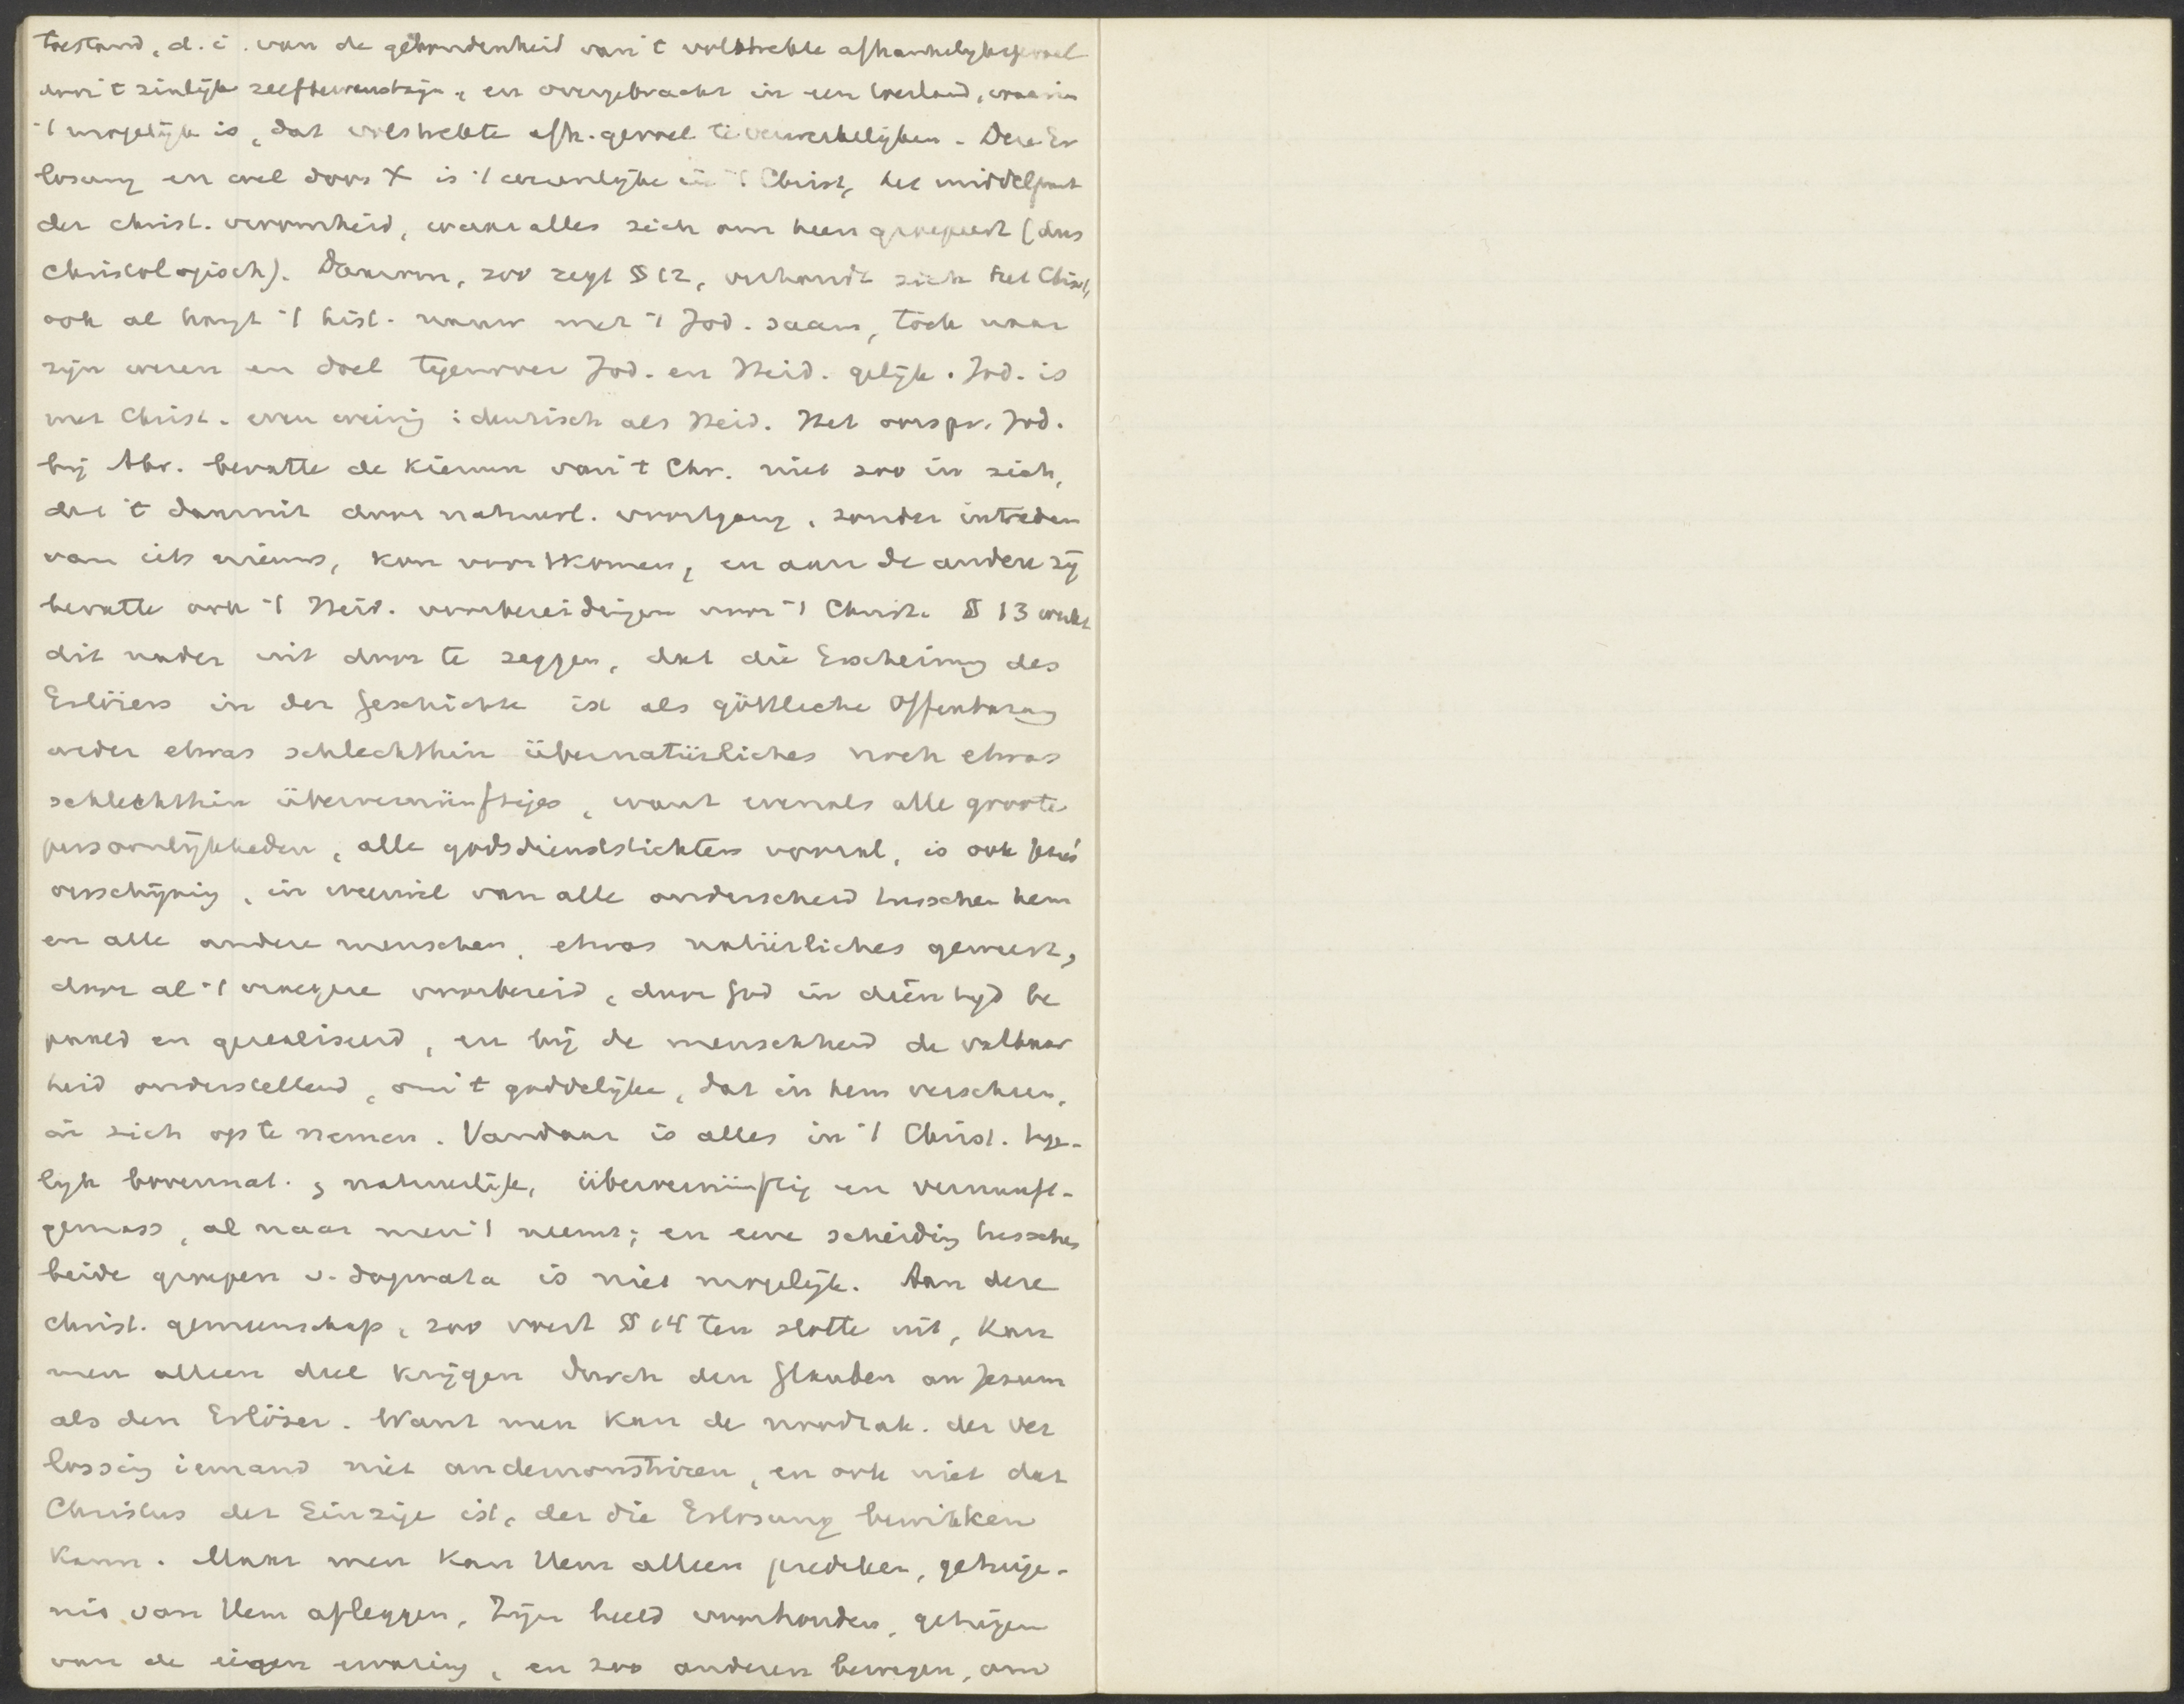 toestand, d.i. van de gebondenheid van 't volstrekte afhankelijkhgevoel
door 't zinlijk zelfbewustzijn, en overgebracht in een toestand, waarin
't mogelijk is, dat volstrekte afh. gevoel te verwerkelijken. Deze Er
losung en wel door X is 't wezenlijke in 't Christ, het middelpunt
der christ. vroomheid, waar alles zich om heen groepeert (dus
christologisch). Daarom, zoo zegt § 12, verhoudt zich het Christ,
ook al hangt 't hist. nauw met 't Jod. saam, toch naar
zijn wezen en doel tegenover Jod. en Heid. gelijk. Jod. is
met Christ. even weinig identisch als Heid. Het oorspr. Jod.
bij Abr. bevatte de kiemen van 't Chr. niet zoo in zich,
dat 't daaruit door natuurl. voortgang, zonder intreden
van iets nieuws, kon voortkomen, en aan de andere zij
bevatte ook 't Heid. voorbereidingen voor 't Christ. § 13 werkt
dit nader uit door te zeggen, dat die Erscheinung des
Erlösers in der Geschichte ist als göttliche Offenbarung
weder etwas schlechthin übernatürliches noch etwas
schlechthin übervernünftiges, want evenals alle groote
persoonlijkheden, alle godsdienststichters vooral, is ook Jezus'
verschijning, in weerwil van alle onderscheid tusschen hem
en alle andere menschen, etwas natürliches geweest,
door al 't vroegere voorbereid, door God in dien tijd be
paald en gerealiseerd, en bij de menschheid de vatbaar
heid onderstellend, om 't goddelijke, dat in hem verscheen,
in zich op te nemen. Vandaar is alles in 't Christ. tege-
lijk bovennat. & natuurlijk, übervernünftig en vernunft-
gemäss, al naar men 't neemt; en eene scheiding tusschen
beide groepen v. dogmata is niet mogelijk. Aan deze
christ. gemeenschap, zoo voert § 14 ten slotte uit, kan
men alleen deel krijgen durch den Glauben an Jesum
als den Erlöser. Want men kan de noodzak. der ver
lossing iemand niet andemonstriren, en ook niet dat
Christus der Einzige ist, der die Erlosung bewirken
kann. Maar men kan Hem alleen prediken, getuige-
nis van Hem afleggen, Zijn beeld voorhouden, getuigen
van de eigen ervaring, en zoo anderen bewegen, om